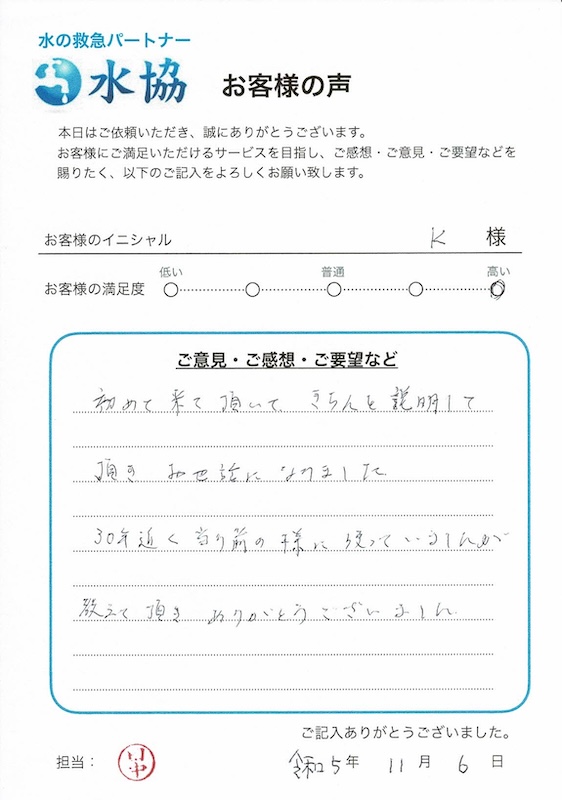 水の救急パートナー
水協 お客様の声
本日はご依頼いただき、誠にありがとうございます。
お客様にご満足いただけるサービスを目指し、ご感想・ご意見・ご要望などを
賜りたく、以下のご記入をよろしくお願い致します。
お客様のイニシャル K 様
低い 普通 高い
お客様の満足度
ご意見・ご感想・ご要望など
初めて来て頂いて きちんと説明して
頂き お世話に なりました
30年近く当り前の様に使っていましたが
教えて頂き ありがとうございました
ご記入ありがとうございました。
担当： 令和5年 11月 6日